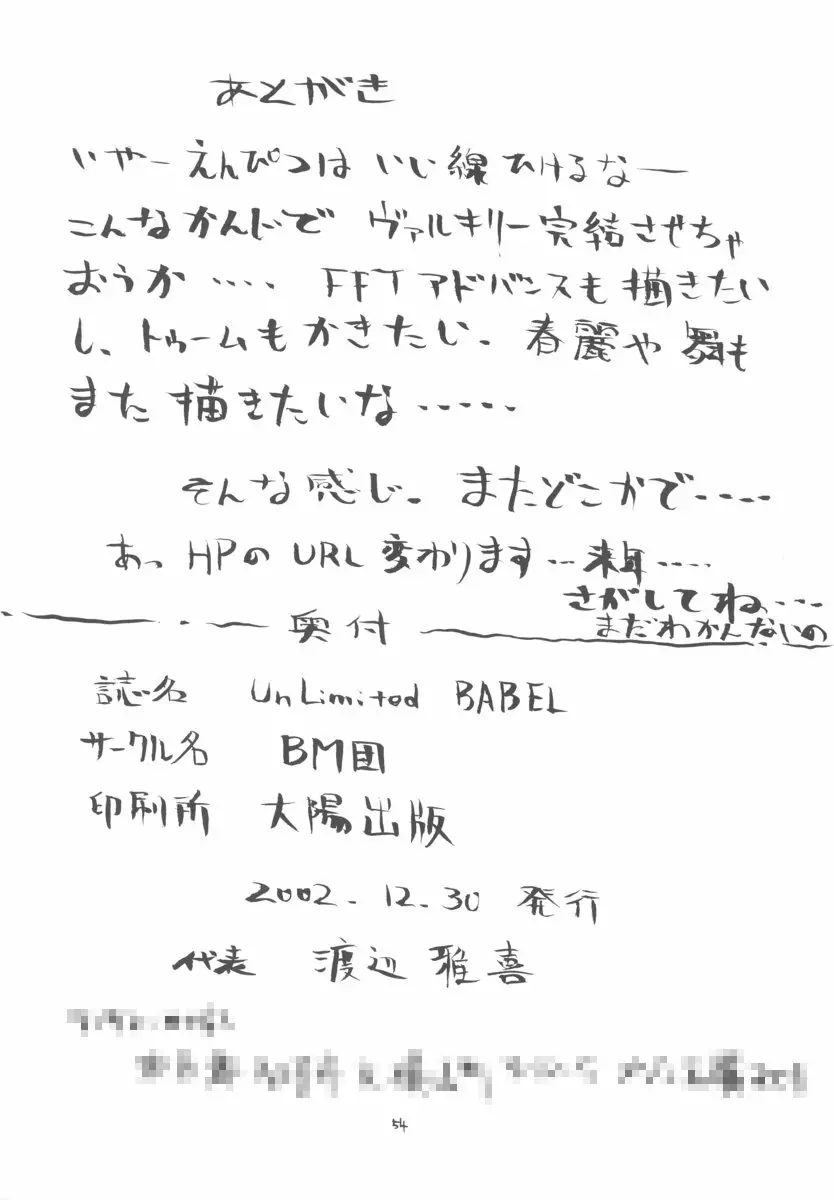 あとがき
いやーえんぴつは いい線ひけるなー
こんなかんじで ヴァルキリー完結させちゃ
おうか‥‥ FFTアドバンスも描きたい
し、トゥームもかきたい。春麗や舞も
また描きたいな‥‥‥
そんな感じ。またどこかで‥‥
あっ HPのURL変わります‥来年‥‥
さがしてね‥‥
まだわかんないの
奥付
誌名 UnLimited BABEL
サークル名 BM団
印刷所 大陽出版
2002.12.30 発行
代表 渡辺雅喜
54